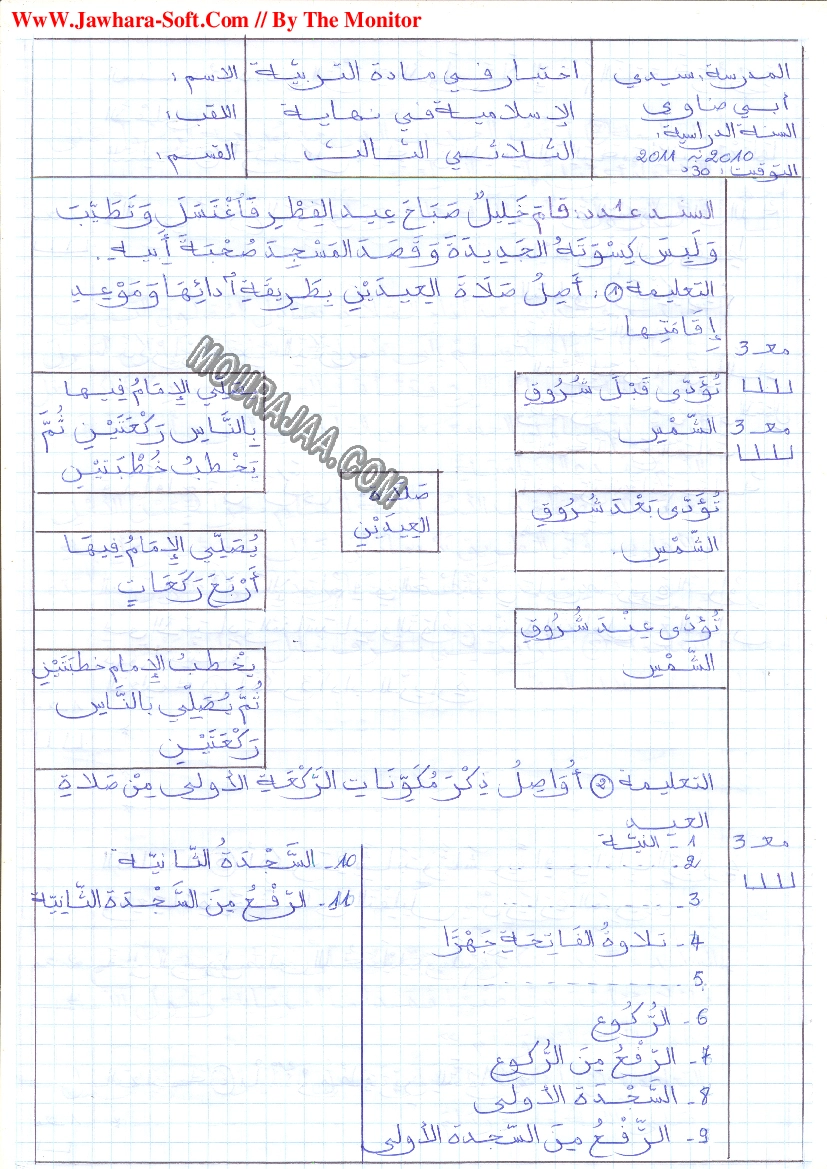 WwW.Jawhara-Soft.Com // By The Monitor
المدرسة: سيدي
أبي ضاوي
السنة الدراسية:
2010 ~ 2011
التوقيت: 30د
اختبار في مادة التربية
الإسلامية في نهاية
الثلاثي الثالث
الاسم:
اللقب:
القسم:
السند عدد1: قَامَ خَلِيلٌ صَبَاحَ عِيدِ الفِطْرِ فَٱغْتَسَلَ وَتَطَيَّبَ
وَلَبِسَ كِسْوَتَهُ الجَدِيدَةَ وَقَصَدَ المَسْجِدَ صُحْبَةَ أَبِيهِ.
التعليمة ①: أَصِلُ صَلَاةَ العِيدَيْنِ بِطَرِيقَةِ أَدَائِهَا وَمَوْعِدِ
إِقَامَتِهَا
مع 3
تُؤَدَّى قَبْلَ شُرُوقِ
الشَّمْسِ
مع 3
يُصَلِّي الإِمَامُ فِيهَا
بِالنَّاسِ رَكْعَتَيْنِ ثُمَّ
يَخْطُبُ خُطْبَتَيْنِ
MOURAJAA.COM
صَلَاةُ
العِيدَيْنِ
تُؤَدَّى بَعْدَ شُرُوقِ
الشَّمْسِ.
يُصَلِّي الإِمَامُ فِيهَا
أَرْبَعَ رَكَعَاتٍ
تُؤَدَّى عِنْدَ شُرُوقِ
الشَّمْسِ
يَخْطُبُ الإِمَام خطبَتَيْنِ
ثُمَّ يُصَلِّي بالنَّاسِ
رَكْعَتَيْنِ
التعليمة ② أُوَاصِلُ ذِكْرَ مُكَوِّنَاتِ الرَّكْعَةِ الأولى مِنْ صَلَاةِ
العيد
مع 3
1 - النيّة
2 - ..............
3 - ..............
4 - تلاوةُ الفَاتِحَةِ جَهْرًا
5 - ..............
6 - الرُّكُوع
7 - الرّفْعُ مِنَ الرُّكوع
8 - السَّجْدَة الأولى
9 - الرّفْعُ مِنَ السّجدة الأولى
10 - السَّجْدَةُ الثّانيّة
11 - الرّفْعُ مِنَ السَّجْدَة الثّانِيّة